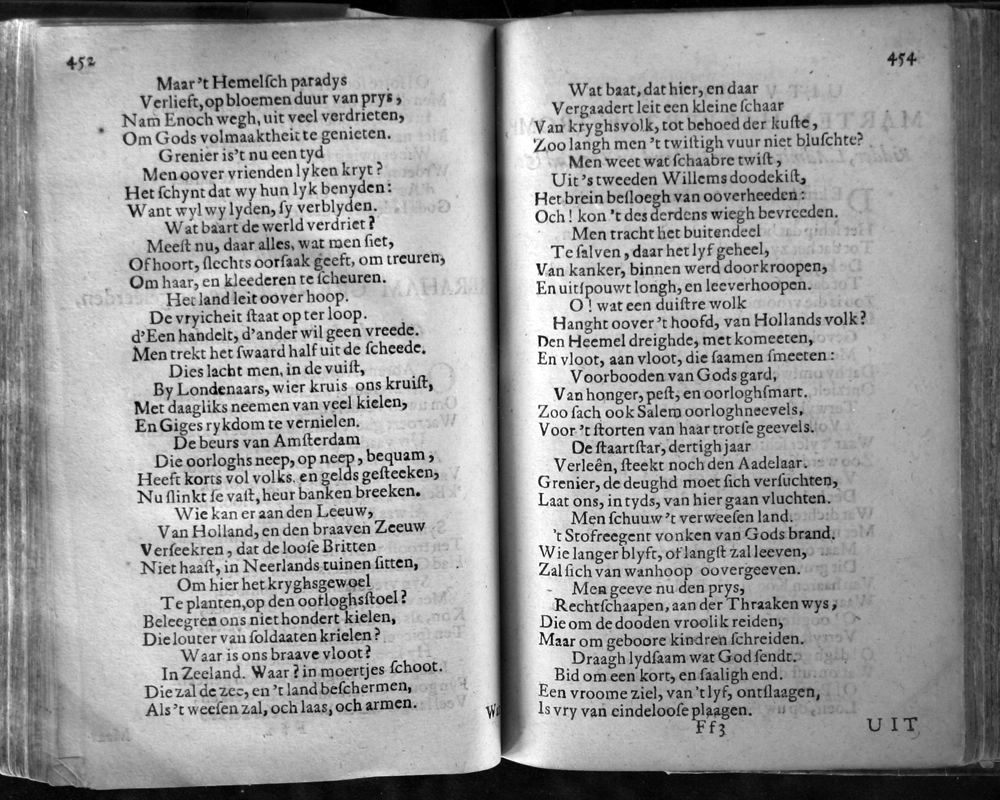 452
Maar 't Hemelſch paradys
Verlieft, op bloemen duur van prys,
Nam Enoch wegh, uit veel verdrieten,
Om Gods volmaaktheit te genieten.
Grenier is't nu een tyd
Men oover vrienden lyken kryt?
Het ſchynt dat wy hun lyk benyden:
Want wyl wy lyden, ſy verblyden.
Wat baart de werld verdriet?
Meeſt nu, daar alles, wat men ſiet,
Of hoort, ſlechts oorſaak geeft, om treuren,
Om haar, en kleederen te ſcheuren.
Het land leit oover hoop.
De vryicheit ſtaat op ter loop.
d'Een handelt, d'ander wil geen vreede.
Men trekt het ſwaard half uit de ſcheede.
Dies lacht men, in de vuiſt,
By Londenaars, wier kruis ons kruiſt,
Met daagliks neemen van veel kielen,
En Giges rykdom te vernielen.
De beurs van Amſterdam
Die oorloghs neep, op neep, bequam,
Heeft korts vol volks, en gelds geſteeken,
Nu ſlinkt ſe vaſt, heur banken breeken.
Wie kan er aan den Leeuw,
Van Holland, en den braaven Zeeuw
Verſeekren, dat de looſe Britten
Niet haaſt, in Neerlands tuinen ſitten,
Om hier het kryghsgewoel
Te planten, op den oorloghsſtoel?
Beleegren ons niet hondert kielen,
Die louter van ſoldaaten krielen?
Waar is ons braave vloot?
In Zeeland. Waar? in moertjes ſchoot.
Die zal de zee, en 't land beſchermen,
Als 't weeſen zal, och laas, och armen.
454
Wat baat, dat hier, en daar
Vergaadert leit een kleine ſchaar
Van kryghsvolk, tot behoed der kuſte,
Zoo langh men 't twiſtigh vuur niet bluſchte?
Men weet wat ſchaabre twiſt,
Uit 's tweeden Willems doodekiſt,
Het brein beſloegh van oóverheeden:
Och! kon 't des derdens wiegh bevreeden.
Men tracht het buitendeel
Te ſalven, daar het lyf geheel,
Van kanker, binnen werd doorkroopen,
En uitſpouwt longh, en leeverhoopen.
O! wat een duiſtre wolk
Hanght oover 't hoofd, van Hollands volk?
Den Heemel dreighde, met komeeten,
En vloot, aan vloot, die ſaamen ſmeeten:
Voorbooden van Gods gard,
Van honger, peſt, en oorloghſmart.
Zoo ſach ook Salem oorloghneevels,
Voor 't ſtorten van haar trotſe geevels.
De ſtaartſtar, dertigh jaar
Verleên, ſteekt noch den Aadelaar.
Grenier, de deughd moet ſich verſuchten,
Laat ons, in tyds, van hier gaan vluchten.
Men ſchuuw 't verweeſen land.
't Stofreegent vonken van Gods brand.
Wie langer blyft, of langſt zal leeven,
Zal ſich van wanhoop oovergeeven.
Men geeve nu den prys,
Rechtſchaapen, aan der Thraaken wys,
Die om de dooden vroolik reiden,
Maar om geboore kindren ſchreiden.
Draagh lydſaam wat God ſendt.
Bid om een kort, en ſaaligh end.
Een vroome ziel, van 't lyf, ontſlaagen,
Is vry van eindelooſe plaagen.
Ff3
UIT